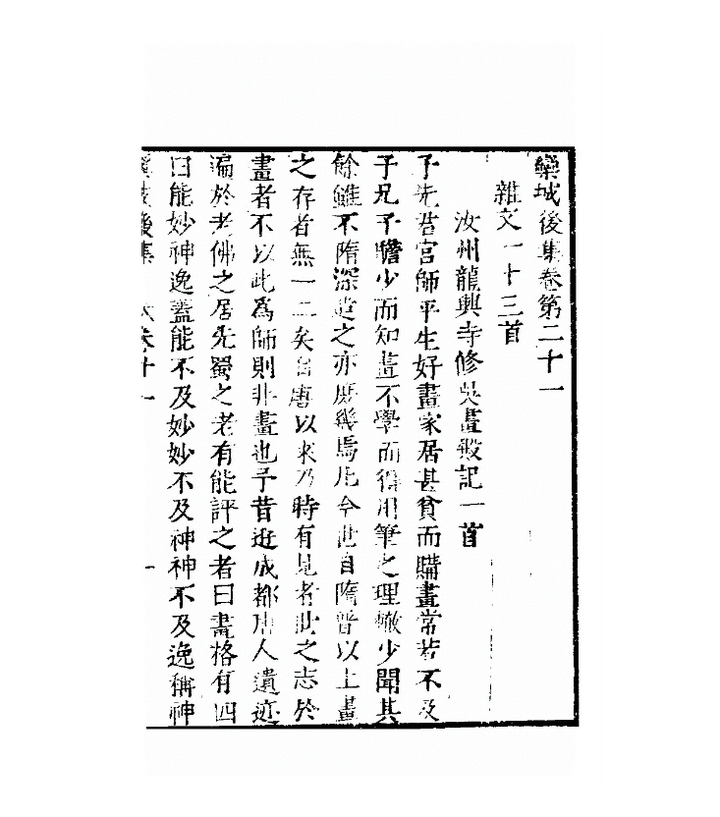 欒城後集卷第二十一
雜文一十三首
汝州龍興寺修吳畫殿記一首
予先君宮師平生好畫家居甚貧而購畫常若不及
予兄子瞻少而知畫不學而得用筆之理轍少聞其
餘雖不隋深造之亦庶幾焉凡今世自隋晉以上畫
之存者無一二矣自唐以來乃時有見者世之志於
畫者不以此爲師則非畫也予昔遊成都唐人遺迹
遍於老佛之居先蜀之老有能評之者曰畫格有四
曰能妙神逸蓋能不及妙妙不及神神不及逸稱神
後集